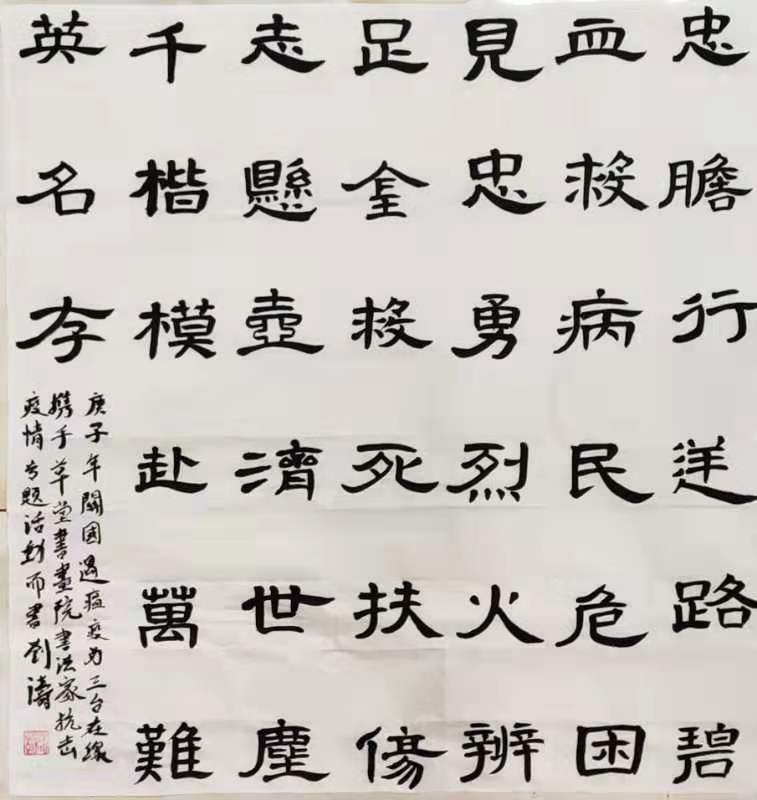 忠膽行逆路碧
血救病民危困
見忠勇烈火辨
足金救死扶傷
志懸壺濟世塵
千楷模赴萬難
英名存
庚子年關國遇瘟疫为三台在線
携手草堂書畫院書法家抗击
疫情专題活動而書劉濤